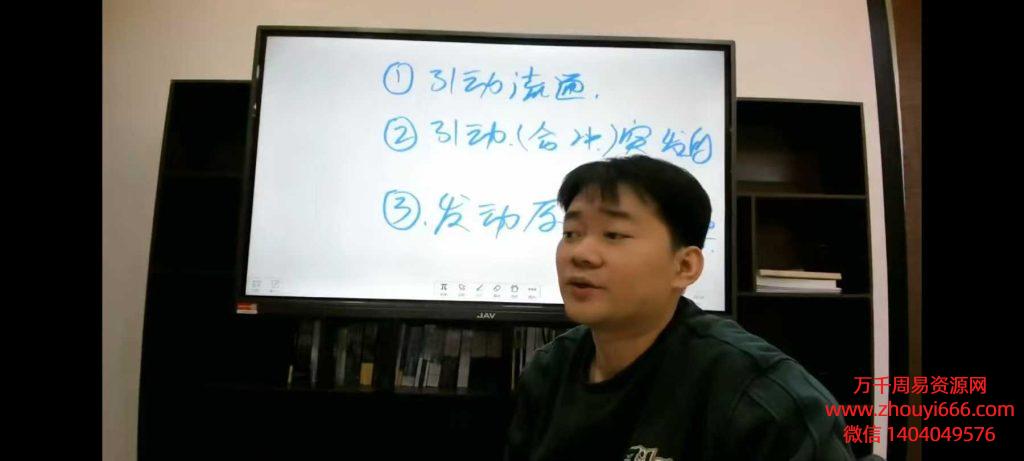 ① 引动流通.
② 引动.(合冲.)突发的
③.发动后
JAV
万千周易资源网
www.zhouyi666.com
微信 1404049576